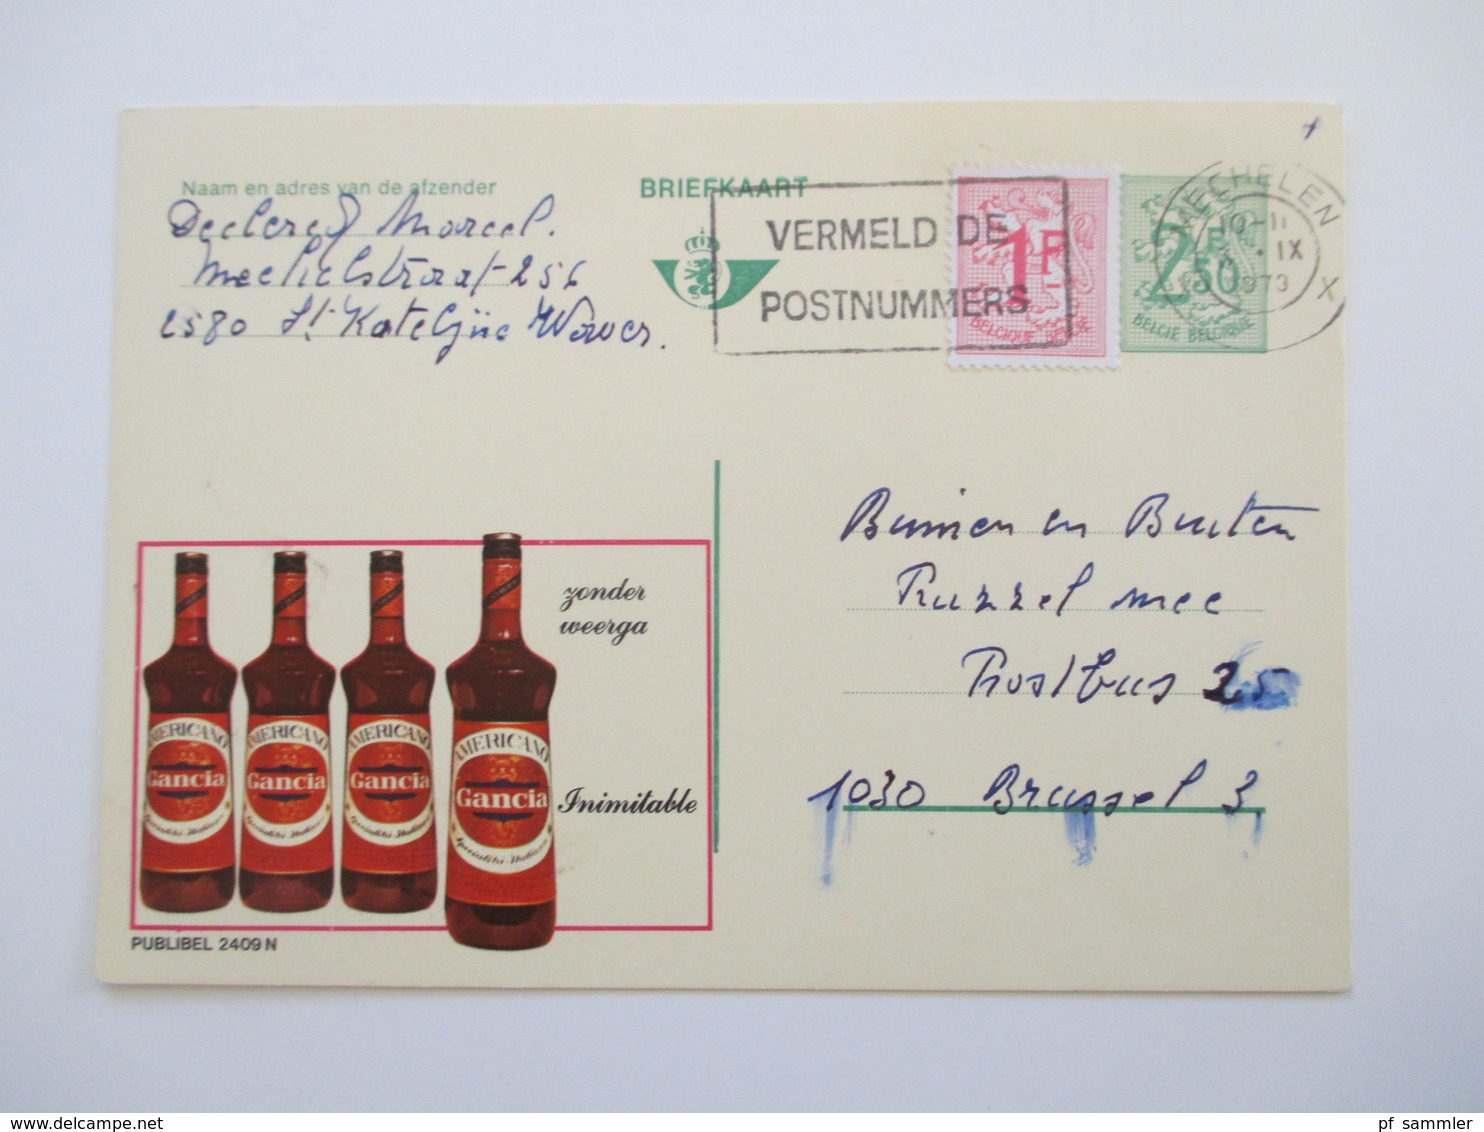 Naam en adres van de afzender
Declercq Marcel.
Mechelstraat 256
2580 St Katelijne Waver.
BRIEFKAART
VERMELD DE
POSTNUMMERS
1F
BELGIQUE BELGIE
2F50
BELGIE BELGIQUE
MECHELEN
10-11
IX
1973
X
Binnen en Buiten
Puzzel mee
Postbus 25
1030 Brussel 3.
zonder
weerga
Inimitable
AMERICANO
Gancia
Specialità Italiana
AMERICANO
Gancia
Specialità Italiana
AMERICANO
Gancia
Specialità Italiana
AMERICANO
Gancia
Specialità Italiana
PUBLIBEL 2409 N
www.delcampe.net
pf_sammler